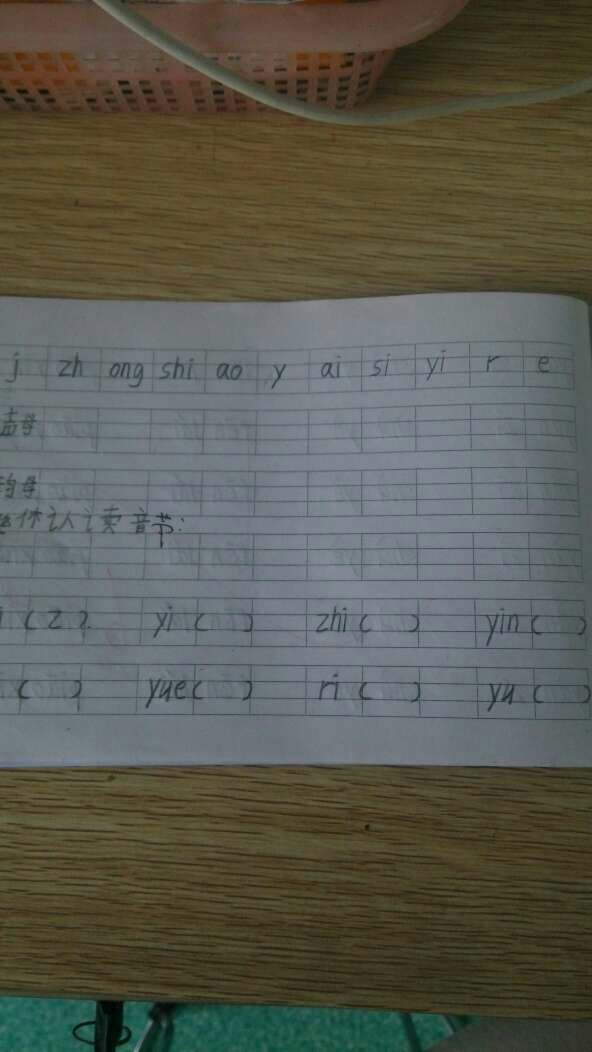 j zh ong shi ao y ai si yi r e
声母
韵母
整体认读音节:
i ( z ) yi ( ) zhi ( ) yin ( )
( ) yue ( ) ri ( ) yu ( )